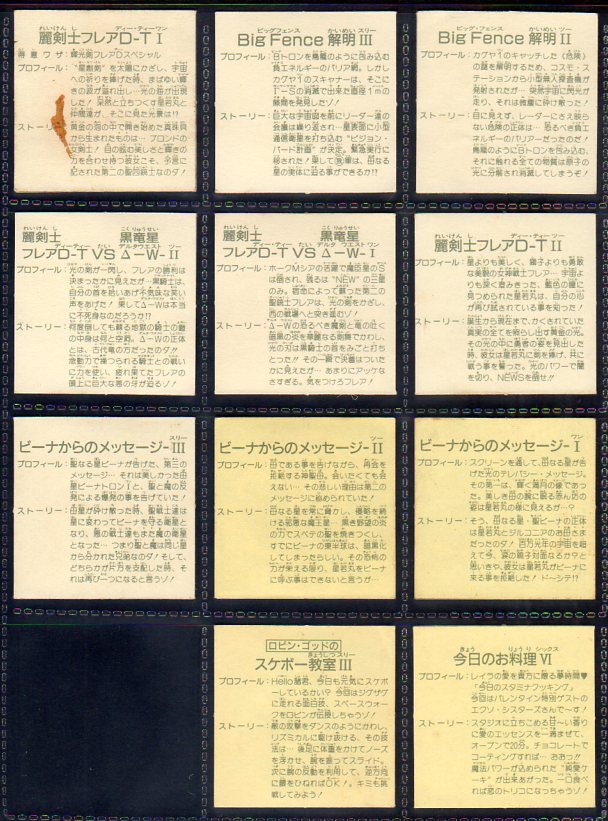 れいけんし ディー・ティーワン
麗剣士フレアD-T I
得意ワザ：輝光剣フレアDスペシャル
プロフィール：“星獣剣”を太陽にかざし、宇宙
への祈りを捧げた時、まばゆい輝
きの波が溢れ出し…光の泡が出現
した！呆然と立ちつくす星若丸と
仲間達が、そこに見た光景は!?
ストーリー：黄金の泡の中で輝き始めた真珠貝
から生まれたものは…ブロンドの
女剣士！目の眩む美しさと輝きの
力を合わせ持つ彼女こそ、予言に
記された第二の聖四銃士なのダ！
ビッグフェンス かいめい スリー
Big Fence 解明 III
プロフィール：Bトロンを鳥籠のように包み込む
負エネルギーのバリア網。しかし
カグヤ1のスキャナーは、そこに
I－Sの消滅で出来た直径1mの
隙間を発見したゾ！
ストーリー：巨大な宇宙図を前にリーダー達の
会議は繰り返され…星表面に小型
通信衛星を打ち込む“ビジョン・
バード計画”が決定。緊急実行に
移された！果して(救)軍は、母なる
星の実体に迫る事ができるか!?
ビッグ・フェンス かいめい ツー
Big Fence 解明 II
プロフィール：カグヤ1のキャッチした〈危険〉
の謎を解明するため、コスモ・ス
テーションから小型無人探査機が
発射されたが…突然宇宙に閃光が
走り、それは微塵に砕け散った！
ストーリー：目に見えず、レーダーにさえ映ら
ない危険の正体は…恐るべき負工
ネルギーのバリアーだったのだ！
鳥籠のようにBトロンを包み込む、
それに触れる全ての物質は原子の
光に分解され消滅してしまうぞ！
れいけんし こくりゅうせい
麗剣士 黒竜星
ディーティー たい デルタ ウエスト ツー
フレアD-T VS Δ-W-II
プロフィール：光の剣が一閃し、フレアの勝利は
決まったかに見えたが…黒騎士は、
自分の首を拾いあげ不気味な笑い
声をあげた！果してΔ-Wは本当
に不死身なのだろうか!?
ストーリー：何度倒しても蘇る地獄の騎士の鎧
の中身は何と空洞。Δ-Wの正体
とは、古代竜の力だったのダ!!
念動力で操つられる騎士との戦い
に力を使い、疲れ果てたフレアの
頭上に巨大な悪の牙が迫るゾ！
れいけんし こくりゅうせい
麗剣士 黒竜星
ディー・ティー たい デルタ ウエスト ワン
フレアD-T VS Δ-W-I
プロフィール：ホークMシアの活躍で魔臣星のS
は倒され、残るは“NEW”の三星
のみ。宿命によって蘇った第二の
聖銃士フレアは、光の剣をかざし、
西の戦場へと突き進むゾ！
ストーリー：Δ-Wの恐るべき魔剣と竜の吐く
暗黒の炎を華麗なる剣舞でかわし、
光の刃は黒騎士の首をみごと打ち
とった!!その一瞬で決着はついた
かに見えたが…あまりにアッケな
さすぎる。気をつけろフレア！
れいけんし ディー・ティー ツー
麗剣士フレアD-T II
プロフィール：星よりも美しく、獅子よりも勇敢
な美貌の女神戦士フレア…宇宙よ
りも深く澄みきった、藍色の瞳に
見つめられた星若丸は、自分の心
が再び試されている事を知った！
ストーリー：誕生から現在まで、かくされていた
真実の全てを照らし出す黄金の光。
その光の中に勇者の姿を見出した
時、彼女は星若丸に剣を捧げ、共に
戦う事を誓った。光のパワーで闇
を切り、NEWSを倒せ!!
スリー
ビーナからのメッセージ-III
プロフィール：聖なる星ビーナが告げた、第三の
メッセージ…それは美しかった由
星ビートロンIと、聖と魔の反
発による爆発の事を告げていた！
ストーリー：由星が砕け散った時、聖戦士達は
星に変わってビーナを守る衛星と
なり、悪の戦士達もまた魔の衛星
となった…つまり聖と魔は同じ星
から分かれた兄弟なのダ！そして、
どちらかが片方を支配した時、そ
れは再び一つになると言うゾ！
ツー
ビーナからのメッセージ-II
プロフィール：母である事を告げながら、再会を
拒絶する神聖母。会いたくても会
えない…その悲しい理由は第二の
メッセージに秘められていた！
ストーリー：母なる星を常に脅かし、侵略を続
ける邪悪な魔王星…黒き野望の炎
の力でスペテの聖を焼きつくし、
すでにビーナの東半球は、暗黒化
してしまったらしい。その恐怖の
力が栄える限り、星若丸をビーナ
に呼ぶ事はできないと言うが…
ワン
ビーナからのメッセージ-I
プロフィール：スクリーンを通して、母なる星が告
げた光のテレパシー・メッセージ。
その第一は、輝く満月の優であっ
た。美しき母の腕に眠る赤ん坊の
姿は星若丸の様に見えるが…？
ストーリー：そう、母なる星・ビーナの正体は
星若丸とジルコニアのお母さま
だったのダ！百万光年の宇宙を超
えて今、涙の親子対面なるか？と
思いきや、彼女は星若丸がビーナに
来る事を拒絶した！ドーシテ!?
ロビン・ゴッドの
きょうしつ スリー
スケボー教室 III
プロフィール：Hello諸君、今日も元気にスケボ
ーしているかい？今回はジグザグ
に走れる面白技、スペースウォー
クをロビンが伝授しちゃうゾ！
ストーリー：敵の攻撃をダンスのようにかわし、
リズミカルに駆け抜ける、その技
法は…後足に体重をかけてノーズ
を浮かせ、腕を振ってスライド。
次に腕の反動を利用して、逆方向
に頭をひねればOK！。キミも挑
戦してみよう！
きょう りょうり シックス
今日のお料理 VI
プロフィール：レイラの愛を貴方に贈る夢時間♥
「今日のスタミナクッキング」
今回はバレンタイン特別ゲストの
エクソ・シスターズさんで～す！
ストーリー：スタジオに立ちこめる甘～い香り
に愛のエッセンスを一滴まぜて、
オーブンで20分。チョコレートで
コーティングすれば…おおっ!!
魔法パワーが込められた“純愛ケ
ーキ”が出来あがった。一口食べ
れば恋のトリコになっちゃうゾ！